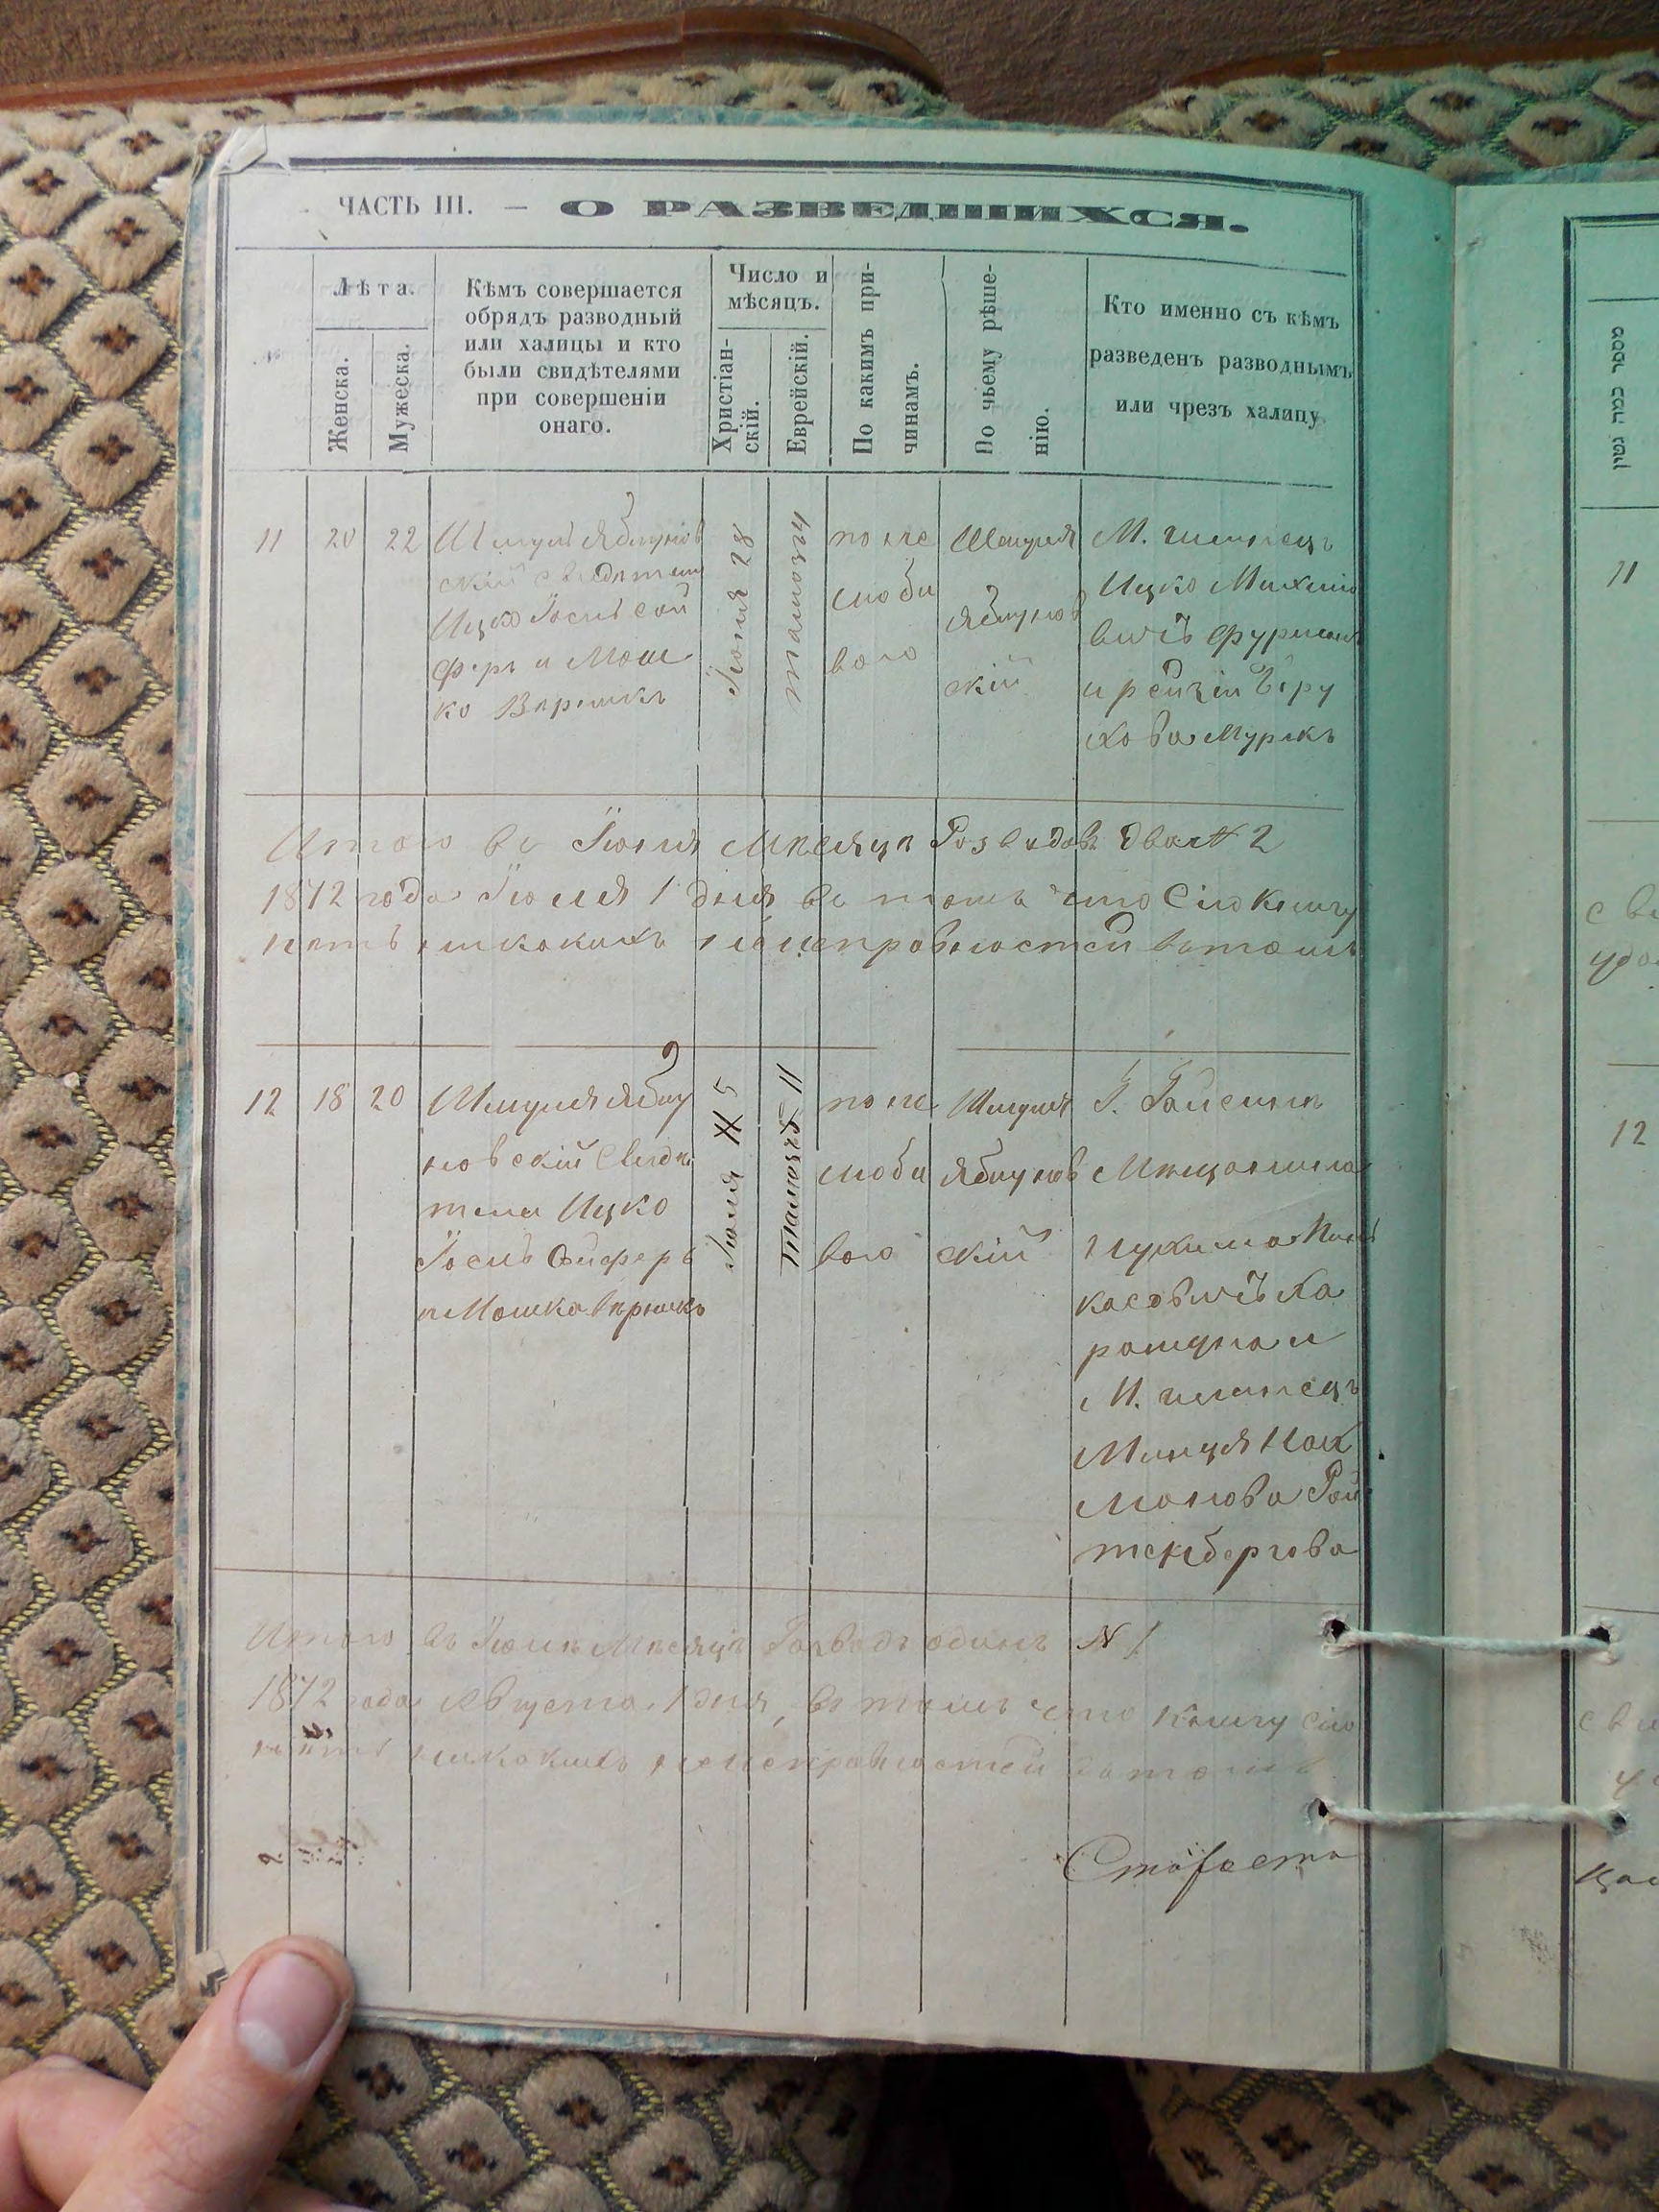 ЧАСТЬ III. — О РАЗВЕДШИХСЯ.
№
Лѣта.
Женска.
Мужеска.
Кѣмъ совершается
обрядъ разводный
или халицы и кто
были свидѣтелями
при совершеніи
онаго.
Число и
мѣсяцъ.
Христіан-
скій.
Еврейскій.
По какимъ при-
чинамъ.
По чьему рѣше-
нію.
Кто именно съ къмъ
разведенъ разводнымъ
или чрезъ халицу.
11
20
22
Шмуль Яблунов
скій свидетели
Ицко Іось Сой
феръ и Мош
ко
Іюня 28
по не
люби
вою
Шмуля
Яблунов
скій
М.
Ицко
вичъ Фурман
и Беру
хова
Итого въ Іюня Мѣсяцѣ Розводовъ два № 2
1872 года Іюля 1 дня въ томъ что Сію книгу
нетъ никакихъ неисправностей вътомъ
12
18
20
Шмуля Яблу
новскій Свидѣ
тели Ицко
Іось Сойферъ
и Мошка
Іюля 5
11
по не
люби
вою
Шмуля
Яблунов
скій
Г. Гайсинъ
Мѣщанина
Нухима
касовичъ Ха
рошуна и
М.
Нах
монова Рой
тенбергова
Итого въ Іюлѣ Мѣсяцѣ Розводъ одинъ N 1
1872 года Августа 1 дня, въ томъ что книгу сію
нѣтъ никакихъ неисправностей вътомъ
Староста
מספר כמה גטין
11
12